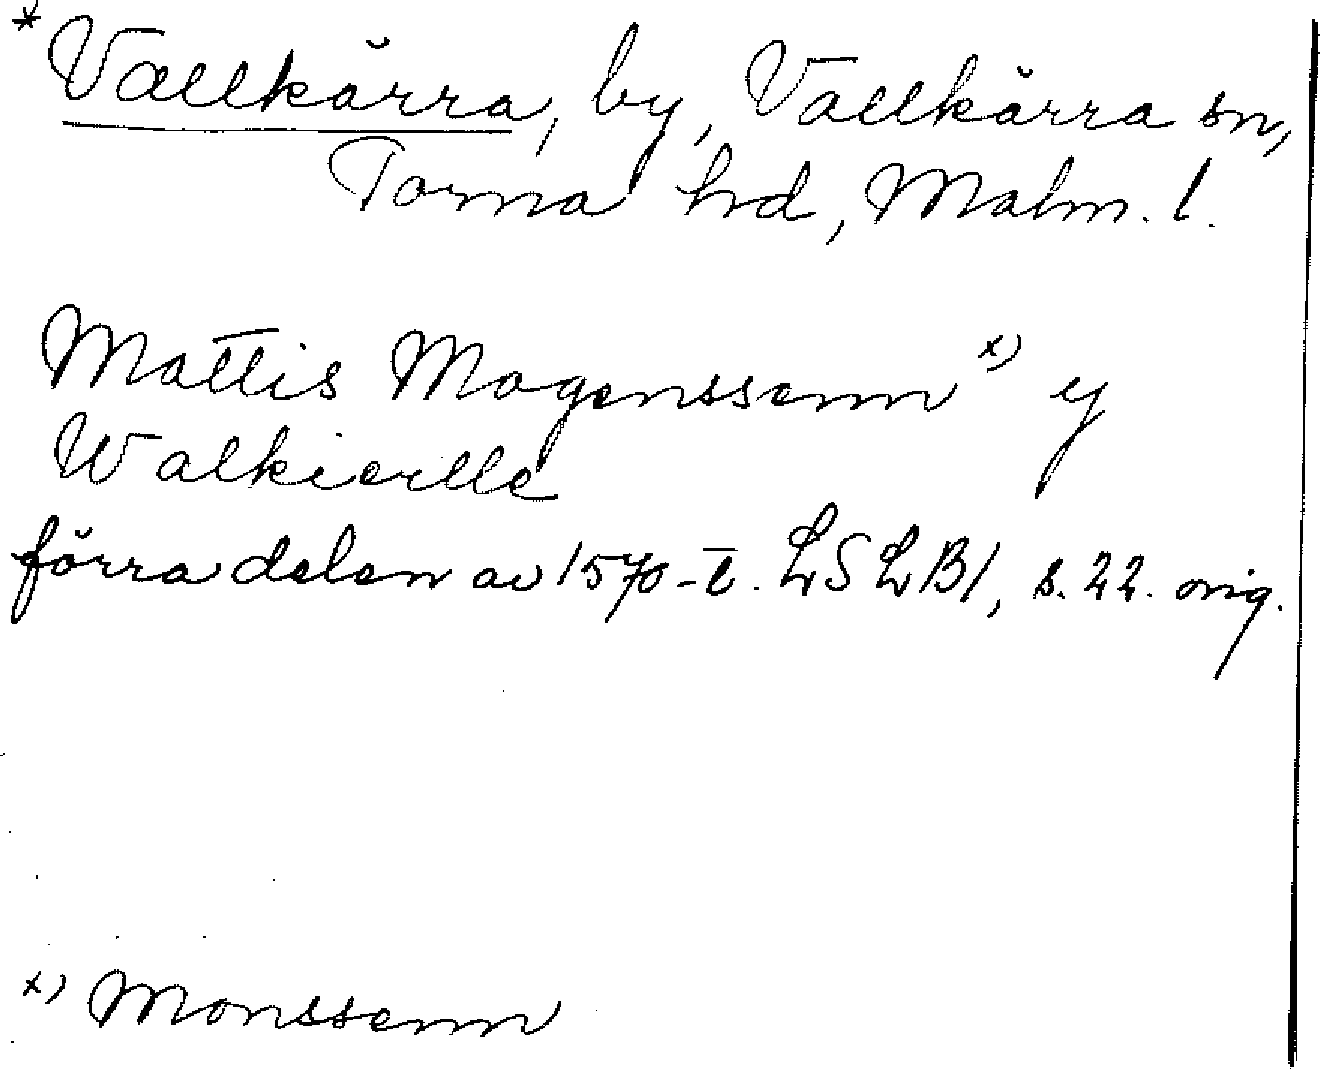 * Vallkärra, by, Vallkärra sn,
Torna hd, Malm. l.
Mattis Mogenssenn x) y
Walkierlle
förra delen av 1570-t. LSLB1, s. 22. orig.
x) Monssenn